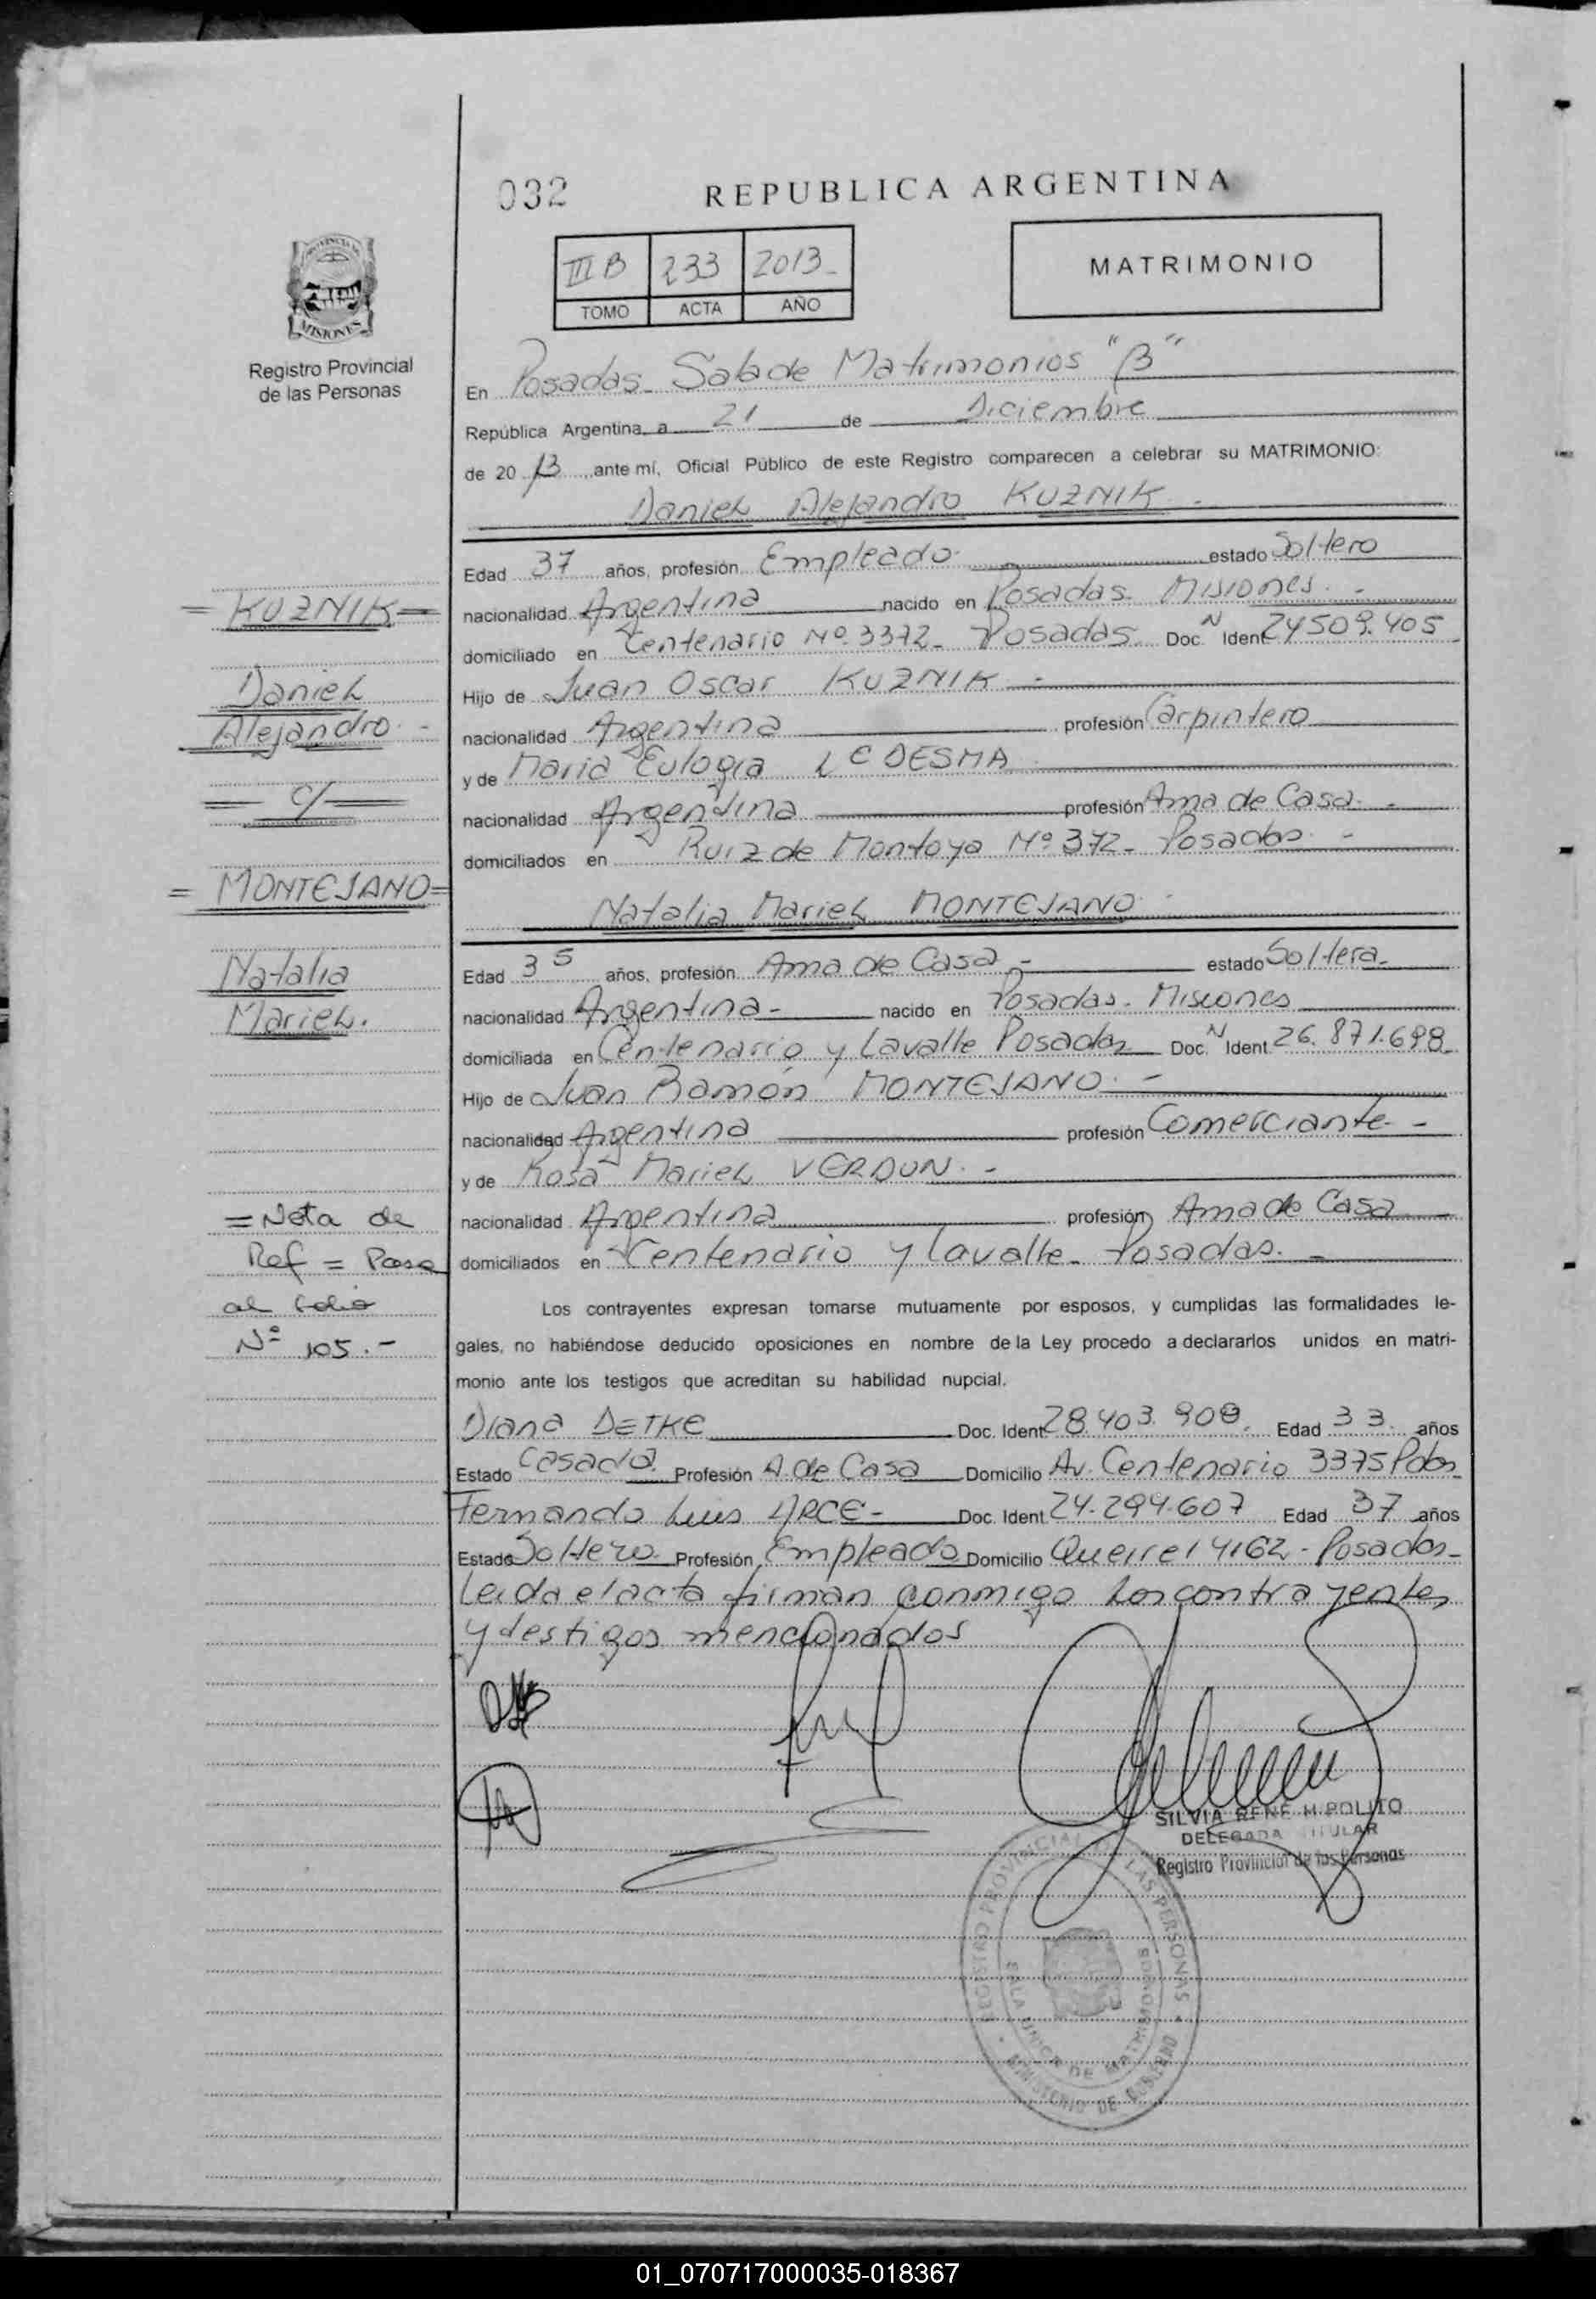 032
REPUBLICA ARGENTINA
III B 233 2013
TOMO ACTA AÑO
MATRIMONIO
PROVINCIA DE
MISIONES
Registro Provincial
de las Personas
En Posadas - Sala de Matrimonios "B"
República Argentina, a 21 de Diciembre
de 20 13 ante mí, Oficial Público de este Registro comparecen a celebrar su MATRIMONIO:
Daniel Alejandro KUZNIK -
Edad 37 años, profesión Empleado estado Soltero
nacionalidad Argentina nacido en Posadas - Misiones -
domiciliado en Centenario Nº 3372 - Posadas Doc. N Ident 24509.405
Hijo de Juan Oscar KUZNIK -
nacionalidad Argentina profesión Carpintero
y de Maria Eulogia LEDESMA
nacionalidad Argentina profesión Ama de Casa -
domiciliados en Ruiz de Montoya Nº 372 - Posadas -
Natalia Mariel MONTEJANO -
Edad 35 años, profesión Ama de Casa - estado Soltera -
nacionalidad Argentina - nacido en Posadas - Misiones
domiciliada en Centenario y Lavalle Posadas Doc. N Ident 26.871.698
Hijo de Juan Ramón MONTEJANO -
nacionalidad Argentina profesión Comerciante -
y de Rosa Mariel VERDUN -
nacionalidad Argentina profesión Ama de Casa
domiciliados en Centenario y Lavalle - Posadas -
Los contrayentes expresan tomarse mutuamente por esposos, y cumplidas las formalidades le-
gales, no habiéndose deducido oposiciones en nombre de la Ley procedo a declararlos unidos en matri-
monio ante los testigos que acreditan su habilidad nupcial.
Diana DETKE Doc. Ident 28.403.900 Edad 33 años
Estado Casada Profesión A. de Casa Domicilio Av. Centenario 3375 Pdas
Fernando Luis ARCE - Doc. Ident 24.294.607 Edad 37 años
Estado Soltero Profesión Empleado Domicilio Queirel 4162 - Posadas -
Leida el acta firman conmigo los contrayentes
y testigos mencionados
SILVIA RENE HIPOLITO
DELEGADA TITULAR
Registro Provincial de las Personas
REGISTRO PROVINCIAL DE LAS PERSONAS
SALA UNICA DE MATRIMONIOS
MINISTERIO DE GOBIERNO
= KUZNIK =
Daniel
Alejandro -
= c/ =
= MONTEJANO =
Natalia
Mariel.
= Nota de
Ref = Pasa
al folio
Nº 105.-
01_070717000035-018367